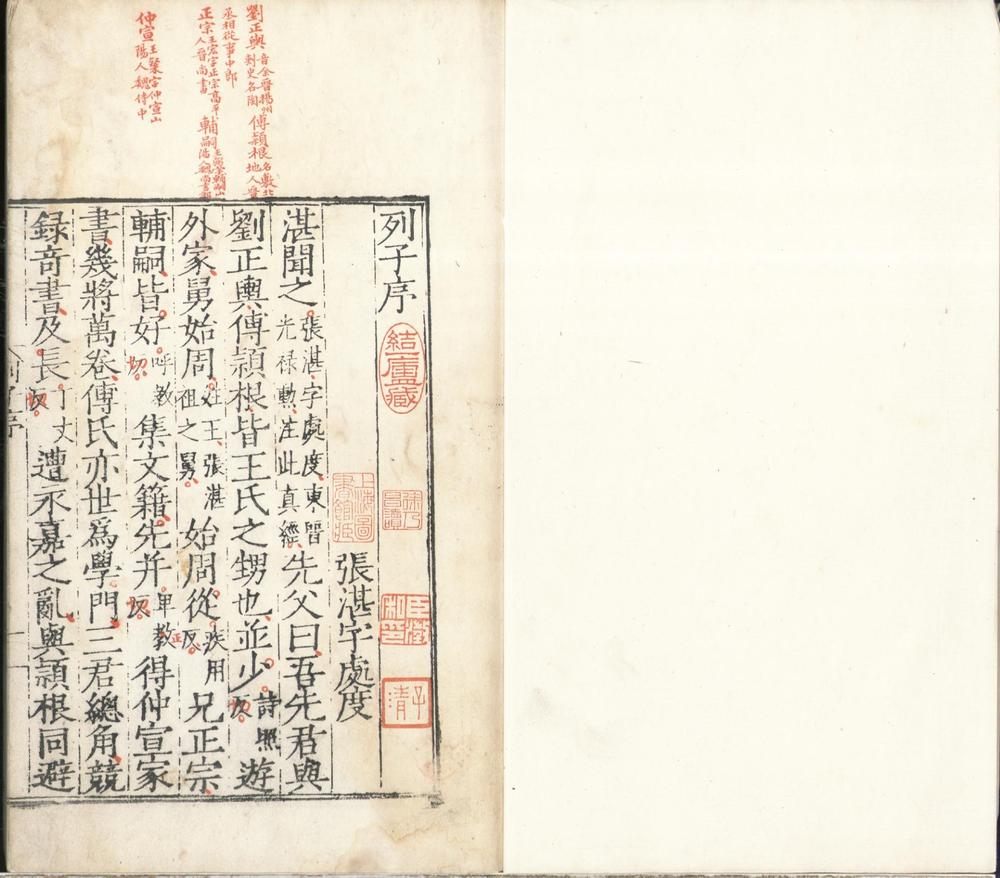 劉正輿音余晉揚州刺史名陶傅穎根名敷北地人晉
丞相從事中郎
正宗王宏字正宗高平人晉尚書輔嗣
仲宣王粲字仲宣山陽人魏侍中
列子序
結廬藏
張湛字處度
上海圖書館藏
湛聞之張湛字處度東晉光祿勲注此真經先父曰吾先君與
劉正輿傅穎根皆王氏之甥也並少詩照反切遊
外家舅始周姓王張湛祖之舅始周從疾用反兄正宗
輔嗣皆好呼教切集文籍先并卑教反切得仲宣家
書幾將萬卷傅氏亦世爲學門三君總角競
錄奇書及長丁丈反切遭永嘉之亂與穎根同避